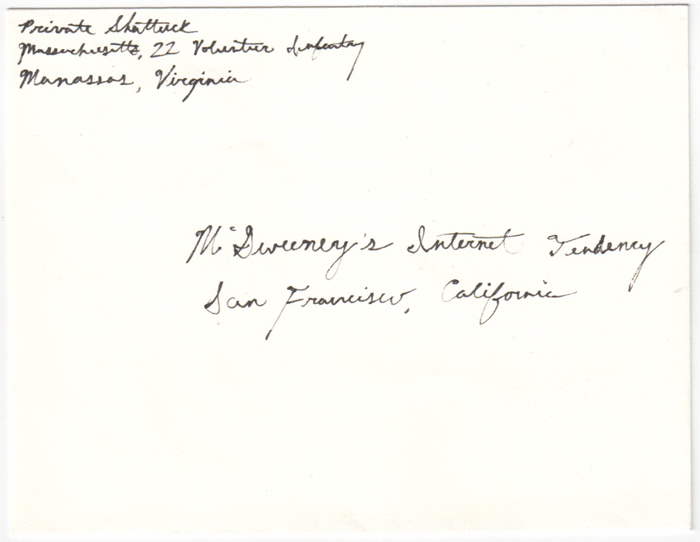 Private Shattuck
Massachusetts, 22 Volunteer Infantry
Manassas, Virginia
McSweeney's Internet Tendency
San Francisco, California